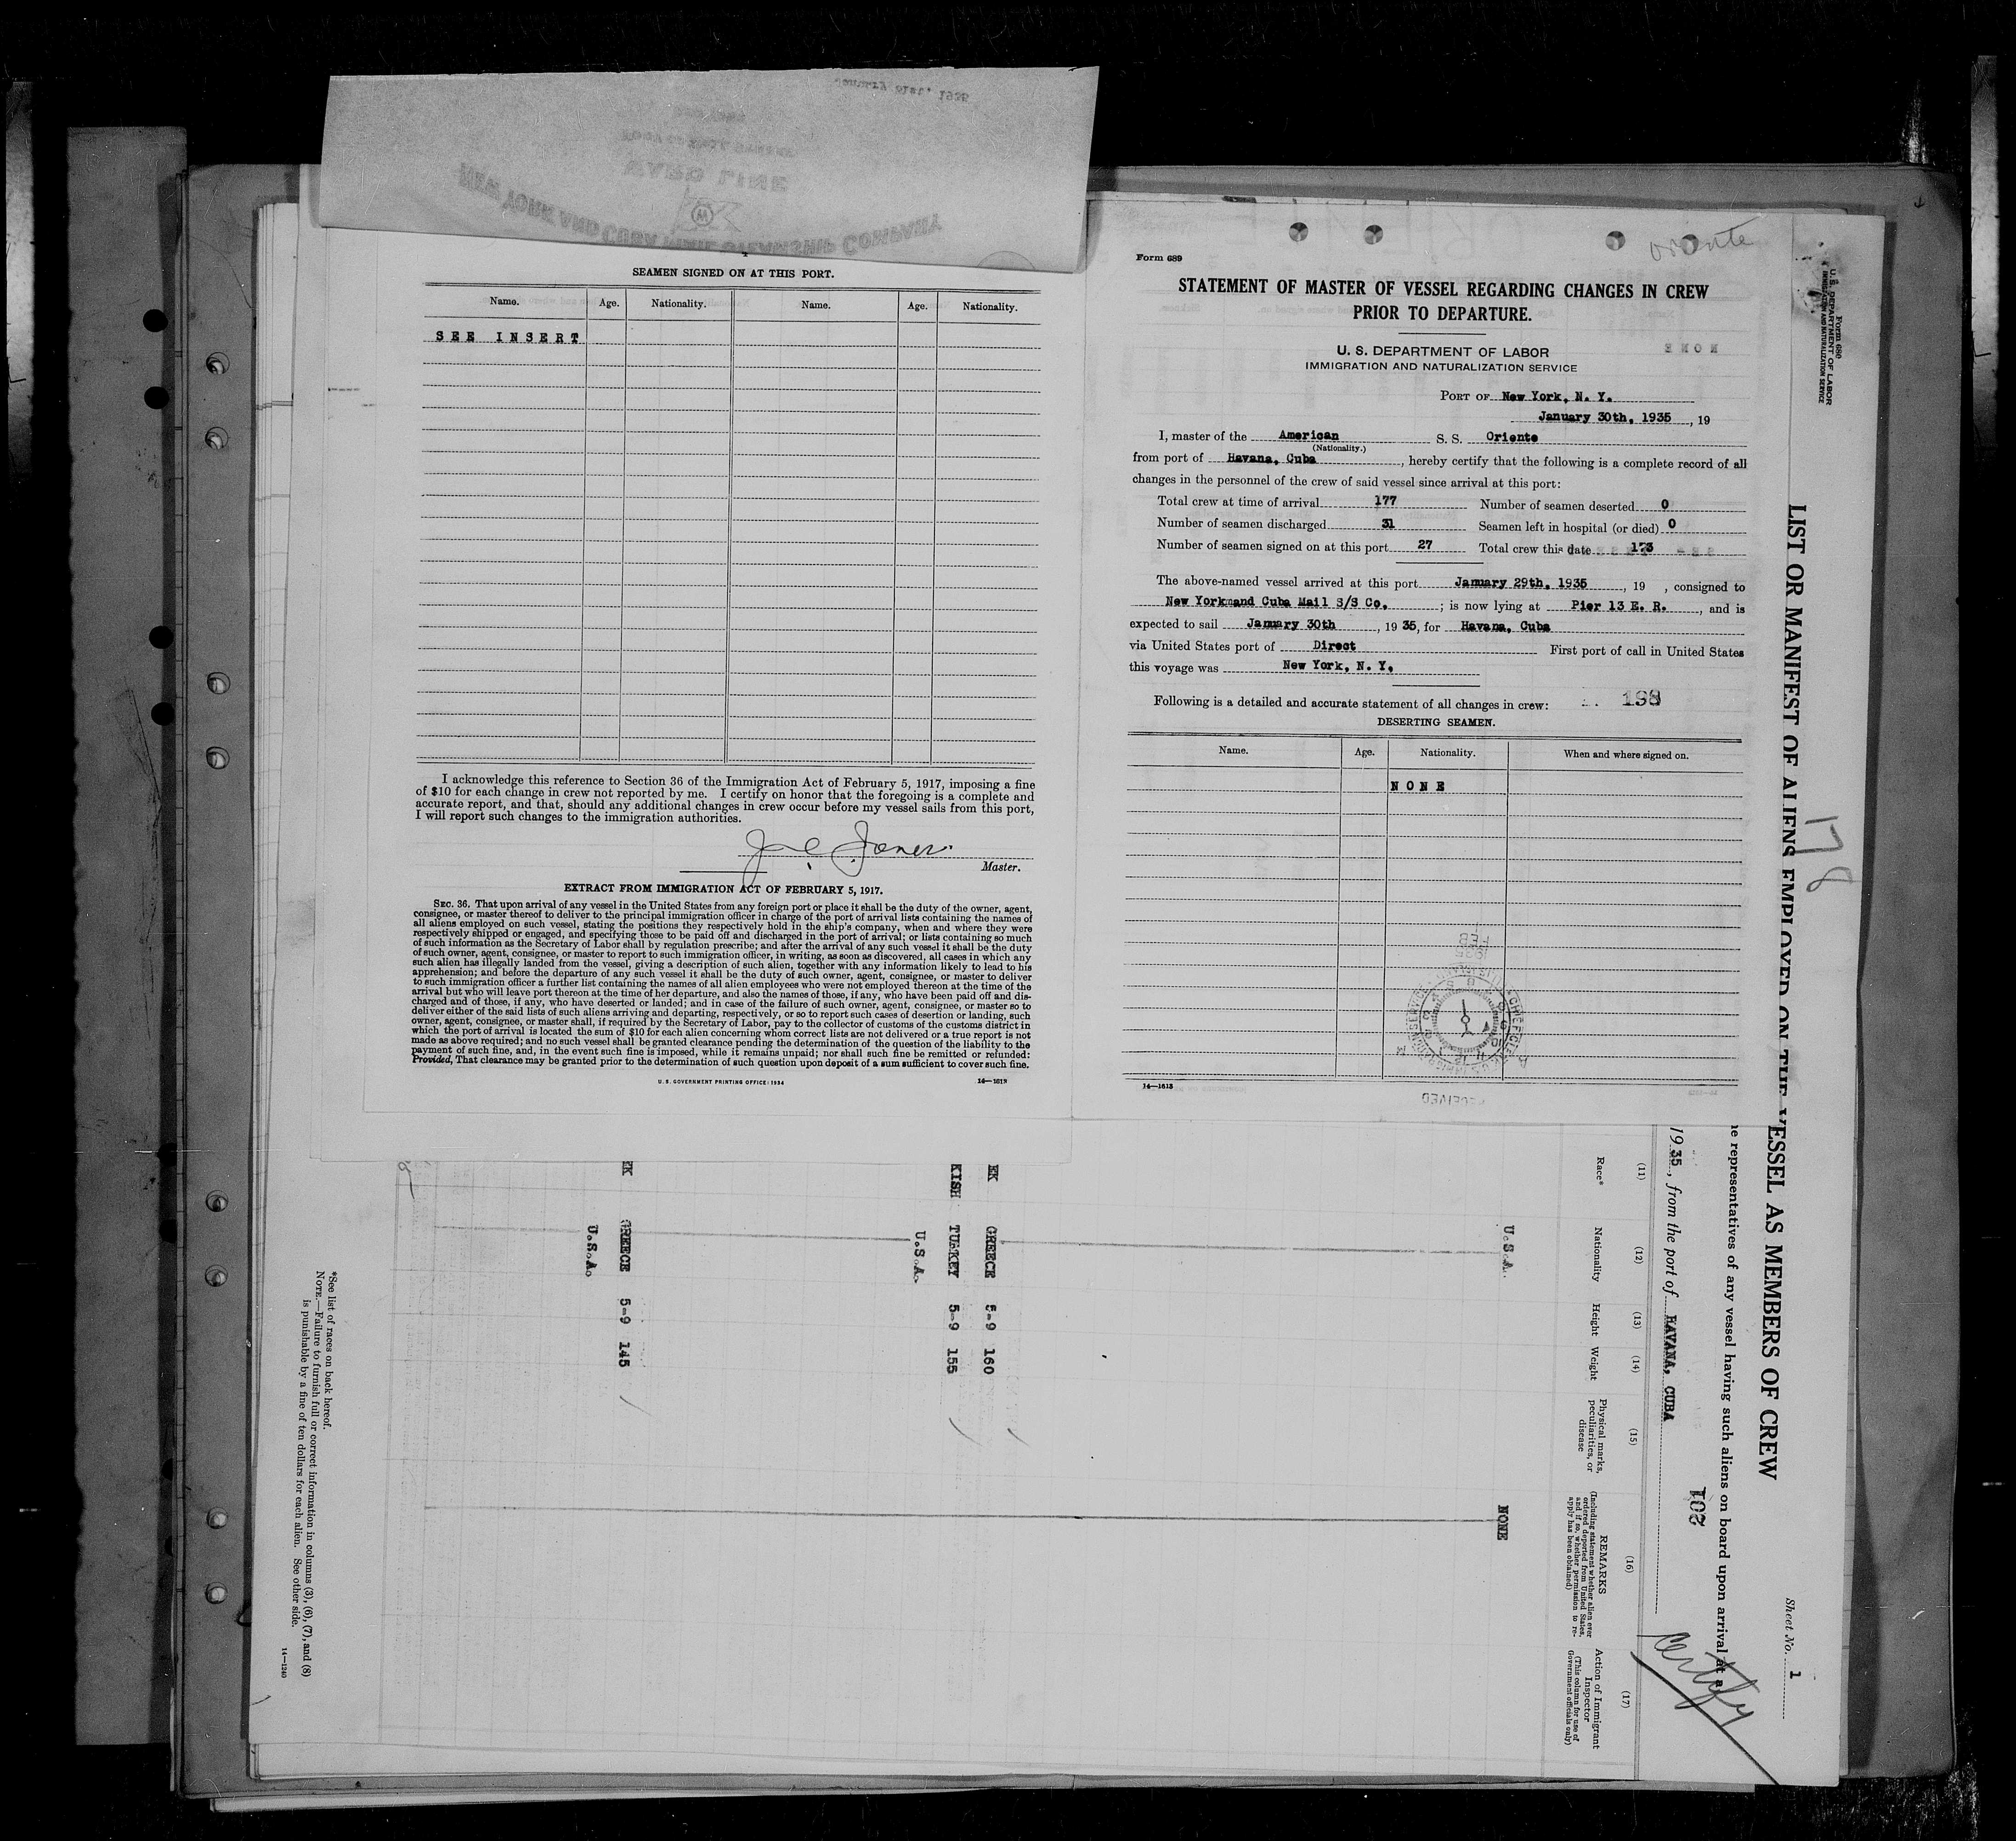 NEW YORK AND CUBA MAIL STEAMSHIP COMPANY
WARD LINE
SEAMEN SIGNED ON AT THIS PORT.
Name. Age. Nationality. Name. Age. Nationality.
SEE INSERT
I acknowledge this reference to Section 36 of the Immigration Act of February 5, 1917, imposing a fine
of $10 for each change in crew not reported by me. I certify on honor that the foregoing is a complete and
accurate report, and that, should any additional changes in crew occur before my vessel sails from this port,
I will report such changes to the immigration authorities.
Jones
Master.
EXTRACT FROM IMMIGRATION ACT OF FEBRUARY 5, 1917.
SEC. 36. That upon arrival of any vessel in the United States from any foreign port or place it shall be the duty of the owner, agent,
consignee, or master thereof to deliver to the principal immigration officer in charge of the port of arrival lists containing the names of
all aliens employed on such vessel, stating the positions they respectively hold in the ship's company, when and where they were
respectively shipped or engaged, and specifying those to be paid off and discharged in the port of arrival; or lists containing so much
of such information as the Secretary of Labor shall by regulation prescribe; and after the arrival of any such vessel it shall be the duty
of such owner, agent, consignee, or master to report to such immigration officer, in writing, as soon as discovered, all cases in which any
such alien has illegally landed from the vessel, giving a description of such alien, together with any information likely to lead to his
apprehension; and before the departure of any such vessel it shall be the duty of such owner, agent, consignee, or master to deliver
to such immigration officer a further list containing the names of all alien employees who were not employed thereon at the time of the
arrival but who will leave port thereon at the time of her departure, and also the names of those, if any, who have been paid off and dis-
charged and of those, if any, who have deserted or landed; and in case of the failure of such owner, agent, consignee, or master so to
deliver either of the said lists of such aliens arriving and departing, respectively, or so to report such cases of desertion or landing, such
owner, agent, consignee, or master shall, if required by the Secretary of Labor, pay to the collector of customs of the customs district in
which the port of arrival is located the sum of $10 for each alien concerning whom correct lists are not delivered or a true report is not
made as above required; and no such vessel shall be granted clearance pending the determination of the question of the liability to the
payment of such fine, and, in the event such fine is imposed, while it remains unpaid; nor shall such fine be remitted or refunded:
Provided, That clearance may be granted prior to the determination of such question upon deposit of a sum sufficient to cover such fine.
U. S. GOVERNMENT PRINTING OFFICE: 1934 14—1613
Oriente
Form 689
STATEMENT OF MASTER OF VESSEL REGARDING CHANGES IN CREW
PRIOR TO DEPARTURE.
U. S. DEPARTMENT OF LABOR
IMMIGRATION AND NATURALIZATION SERVICE
NONE
PORT OF New York, N. Y.
January 30th, 1935, 19
I, master of the American S. S. Oriente
(Nationality.)
from port of Havana, Cuba, hereby certify that the following is a complete record of all
changes in the personnel of the crew of said vessel since arrival at this port:
Total crew at time of arrival 177 Number of seamen deserted 0
Number of seamen discharged 31 Seamen left in hospital (or died) 0
Number of seamen signed on at this port 27 Total crew this date 173
The above-named vessel arrived at this port January 29th, 1935, 19 , consigned to
New Yorkmand Cuba Mail S/S Co. ; is now lying at Pier 13 E. R. , and is
expected to sail January 30th , 19 35, for Havana, Cuba
via United States port of Direct First port of call in United States
this voyage was New York, N. Y.
Following is a detailed and accurate statement of all changes in crew: 198
DESERTING SEAMEN.
Name. Age. Nationality. When and where signed on.
NONE
FEB
1935
14—1613
RECEIVED
Form 680
U. S. DEPARTMENT OF LABOR
IMMIGRATION AND NATURALIZATION SERVICE
LIST OR MANIFEST OF ALIENS EMPLOYED ON THE VESSEL AS MEMBERS OF CREW
178
Sheet No. 1
representatives of any vessel having such aliens on board upon arrival at a
1935, from the port of HAVANA, CUBA
Certify
(11) (12) (13) (14) (15) (16) (17)
Race* Nationality Height Weight Physical marks, peculiarities, or disease
REMARKS
(Including statement whether alien ever ordered deported from United States, and if so, whether permission to reapply has been obtained)
Action of Immigrant Inspector
(This column for use of Government officials only)
U.S.A. NONE
EK GREECE 5-9 160
KISH TURKEY 5-9 155
U.S.A.
EK GREECE 5-9 145
U.S.A.
*See list of races on back hereof.
NOTE.—Failure to furnish full or correct information in columns (3), (6), (7), and (8)
is punishable by a fine of ten dollars for each alien. See other side.
14—1240